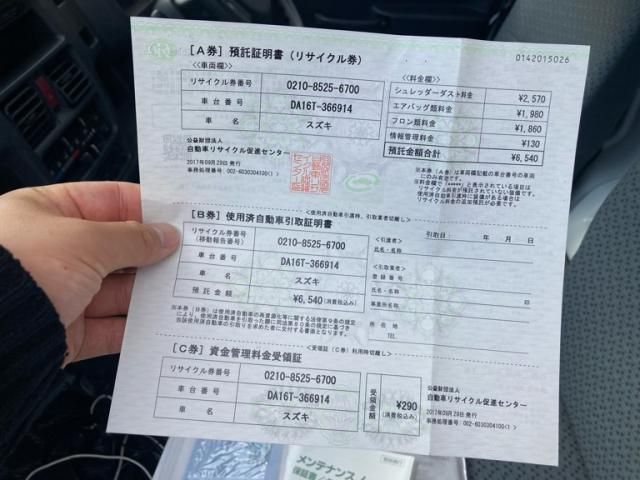 [A券] 預託証明書 (リサイクル券)
0142015026
<<車両欄>>
リサイクル券番号 0210-8525-6700
車台番号 DA16T-366914
車名 スズキ
公益財団法人
自動車リサイクル促進センター
2017年09月29日 発行
事務処理番号: 002-6030304100(1)
<<料金欄>>
シュレッダーダスト料金 ¥2,570
エアバッグ類料金 ¥1,980
フロン類料金 ¥1,860
情報管理料金 ¥130
預託金額合計 ¥6,540
<使用済自動車引渡時、引取業者切離し>
[B券] 使用済自動車引取証明書
リサイクル券番号
(移動報告番号) 0210-8525-6700
車台番号 DA16T-366914
車名 スズキ
預託金額 ¥6,540 (消費税込み)
引取日: 年 月 日
<引渡者>
氏名・名称
<引取業者>
登録番号
氏名・名称 印
事業所名
所在地
TEL
<受領証(C券)利用時切離し>
[C券] 資金管理料金受領証
リサイクル券番号 0210-8525-6700
車台番号 DA16T-366914
車名 スズキ
受領金額 ¥290
(消費税込み)
公益財団法人
自動車リサイクル促進センター
2017年09月29日 発行
事務処理番号: 002-6030304100(1)
メンテナンス
保証書